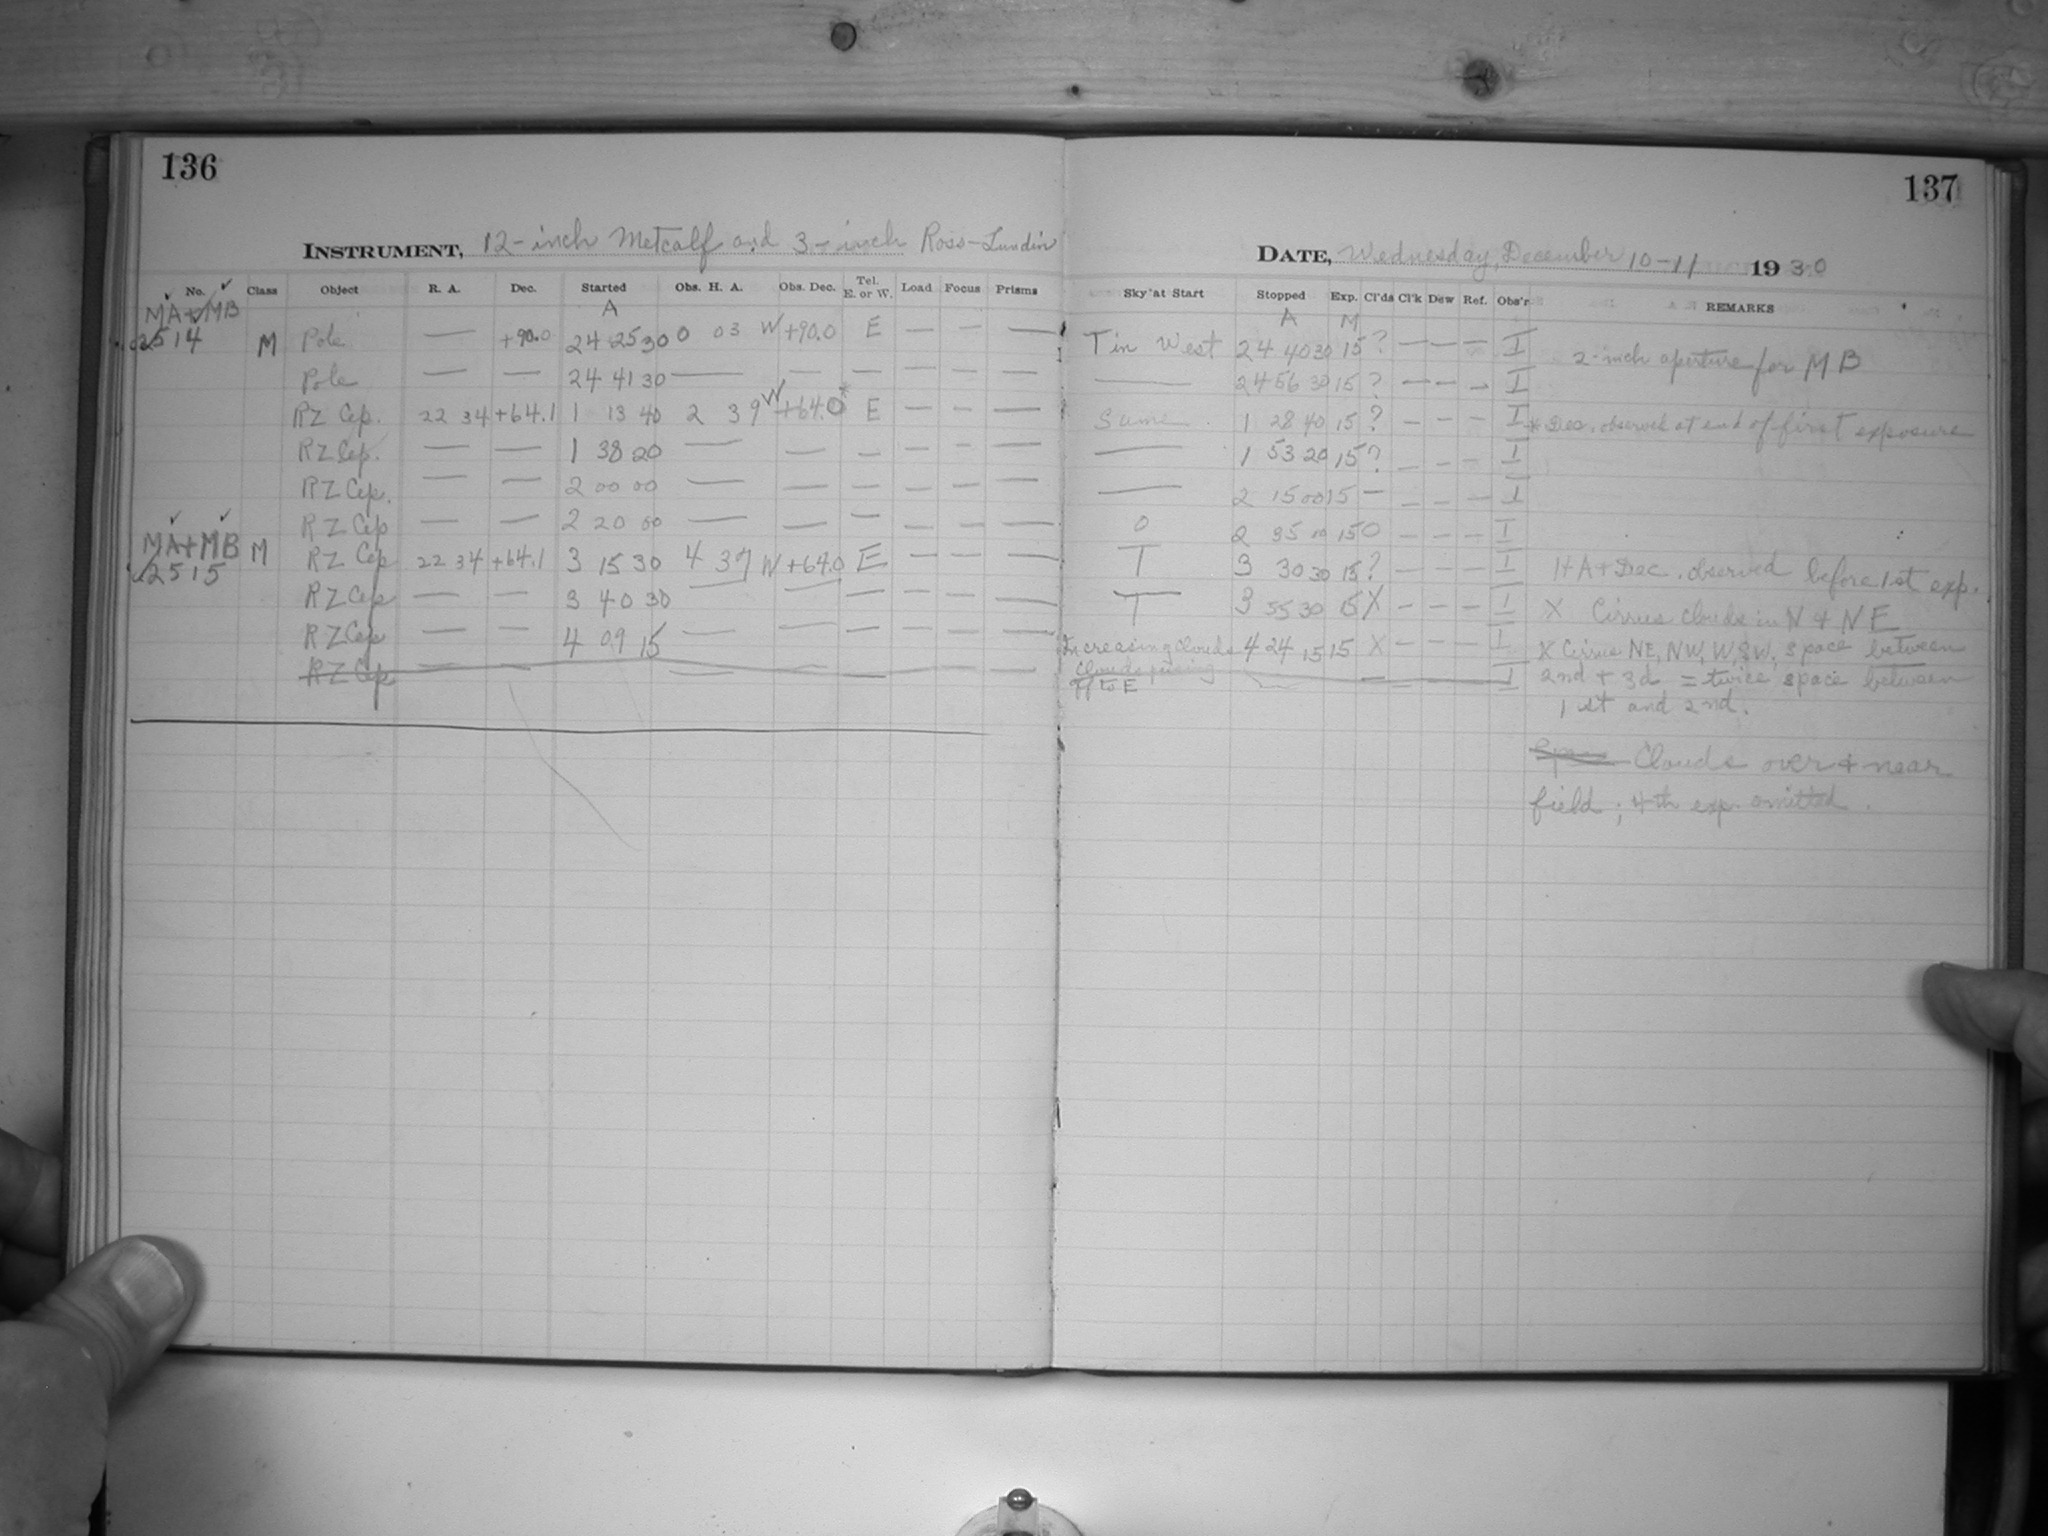 136
INSTRUMENT, 12-inch Metcalf and 3-inch Ross-Lundin
No. Class Object R. A. Dec. Started Obs. H. A. Obs. Dec. Tel. E. or W. Load Focus Prisms
MA+MB A
2514 M Pole — +90.0 24 25 30 0 03 W +90.0 E — — —
Pole — — 24 41 30 — — — — — —
RZ Cep. 22 34 +64.1 1 13 40 2 39 W +64.0* E — — —
RZ Cep. — — 1 38 20 — — — — — —
RZ Cep. — — 2 00 00 — — — — — —
RZ Cep — — 2 20 00 — — — — — —
MA+MB M RZ Cep 22 34 +64.1 3 15 30 4 37 W +64.0 E — — —
2515 RZ Cep — — 3 40 30 — — — — — —
RZ Cep — — 4 09 15 — — — — — —
RZ Cep — — — — — — —
137
DATE, Wednesday, December 10-11 1930
Sky at Start Stopped Exp. Cl'ds Cl'k Dew Ref. Obs'r REMARKS
A M
T in West 24 40 30 15 ? — — — I 2-inch aperture for MB
— 24 56 30 15 ? — — — I
Same 1 28 40 15 ? — — — I * Dec. observed at end of first exposure
— 1 53 20 15 ? — — — I
— 2 15 00 15 — — — — I
0 2 35 00 15 0 — — — I
T 3 30 30 15 ? — — — I HA + Dec. observed before 1st exp.
T 3 55 30 15 X — — — I X Cirrus clouds in N & NE
Increasing clouds 4 24 15 15 X — — — I X Cirrus NE, NW, W, SW, space between
Clouds passing off to E — — — — I 2nd + 3d = twice space between
1st and 2nd.
Space Clouds over & near
field; 4th exp. omitted.